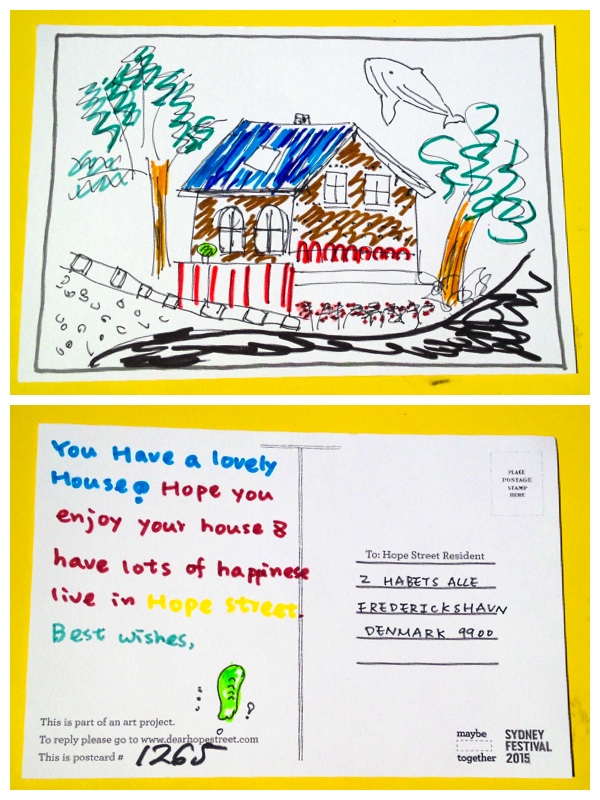 You Have a lovely
House! Hope you
enjoy your house &
have lots of happinese
live in Hope street.
Best wishes,
This is part of an art project.
To reply please go to www.dearhopestreet.com
This is postcard # 1265
PLACE
POSTAGE
STAMP
HERE
To: Hope Street Resident
2 HABETS ALLE
FREDERICKSHAVN
DENMARK 9900
maybe
together
SYDNEY
FESTIVAL
2015